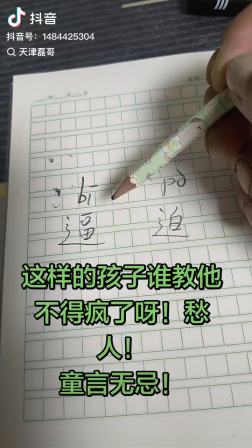 抖音
抖音号：1484425304
天津磊哥
bī pò
逼 迫
这样的孩子谁教他
不得疯了呀！愁
人！
童言无忌！